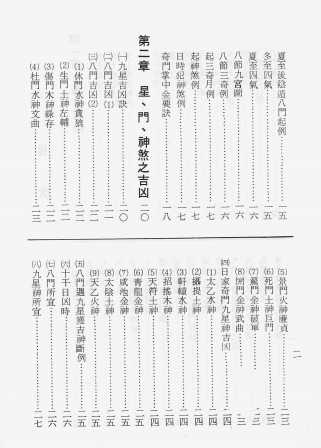 夏至後陰遁八門起例……一五
冬至四氣……一五
夏至四氣……一六
八節九宮圖……一六
八節三奇例……一六
起三奇月例……一七
起神煞例……一七
日時犯神煞例……一七
奇門掌中金要訣……一八
第二章 星、門、神煞之吉凶……二〇
㈠九星吉凶訣……二〇
㈡八門吉凶⑴……二一
㈢八門吉凶⑵……二二
⑴休門水神貪狼……二二
⑵生門土神左輔……二二
⑶傷門木神祿存……二二
⑷杜門水神文曲……二三
⑸景門火神廉貞……二三
⑹死門土神巨門……二三
⑺驚門金神破軍……二三
⑻開門金神武曲……二三
㈣日家奇門九星神吉凶……二四
⑴太乙水神……二四
⑵攝提土神……二四
⑶軒轅水神……二四
⑷招搖木神……二四
⑸天符土神……二四
⑹青龍金神……二五
⑺咸池金神……二五
⑻太陰土神……二五
⑼天乙火神……二五
㈤八門遇九星獲吉神斷例……二五
㈥十干日凶時……二六
㈦八門所宜……二六
㈧九星神所宜……二七
二